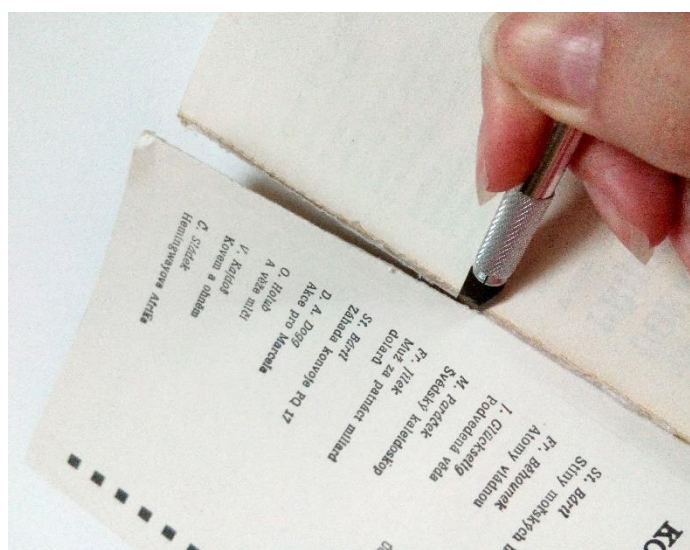 KO
St. Bártl
Stíny mořských
Fr. Běhounek
Atomy vládnou
I. Glückselig
Podvedená věda
M. Paráček
Švédský kaleidoskop
Fr. Jílek
Muž za patnáct miliard
dolarů
St. Bártl
Záhada konvoje PQ 17
D. A. Dogg
Akce pro Marcela
O. Holub
A věže mlčí
V. Kajdoš
Kovem a ohněm
Č. Sládek
Hemingwayova Afrika